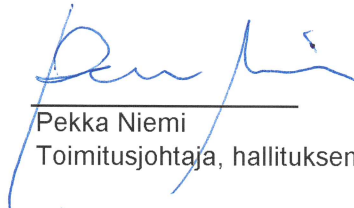 Pekka Niemi
Toimitusjohtaja, hallituksen